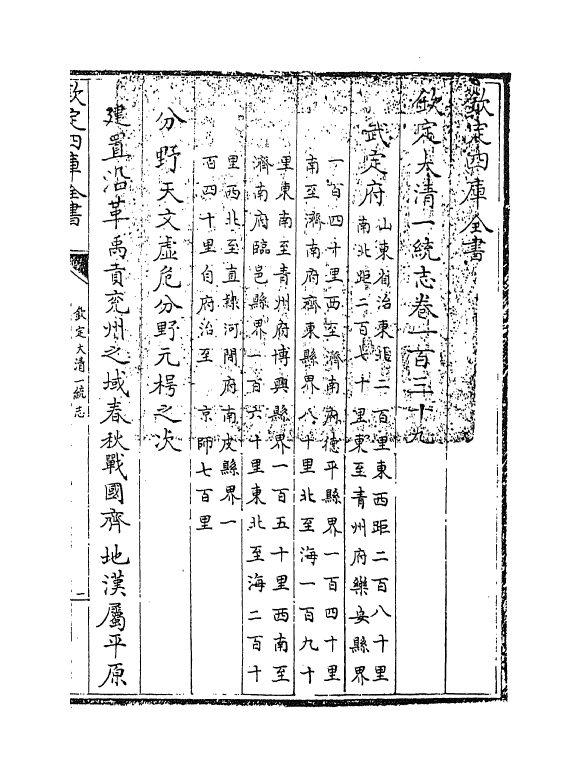 欽定四庫全書
欽定大清一統志卷一百三十九
武定府
山東省治東北二百里東西距二百八十里
南北距二百七十里東至青州府樂安縣界
一百四十里西至濟南府德平縣界一百四十里
南至濟南府齊東縣界八十里北至海一百九十
里東南至青州府博興縣界一百五十里西南至
濟南府臨邑縣界一百六十里東北至海二百十
里西北至直隸河間府南皮縣界一
百四十里自府治至 京師七百里
分野天文虛危分野元枵之次
建置沿革禹貢兗州之域春秋戰國齊地漢屬平原
欽定四庫全書
欽定大清一統志
一